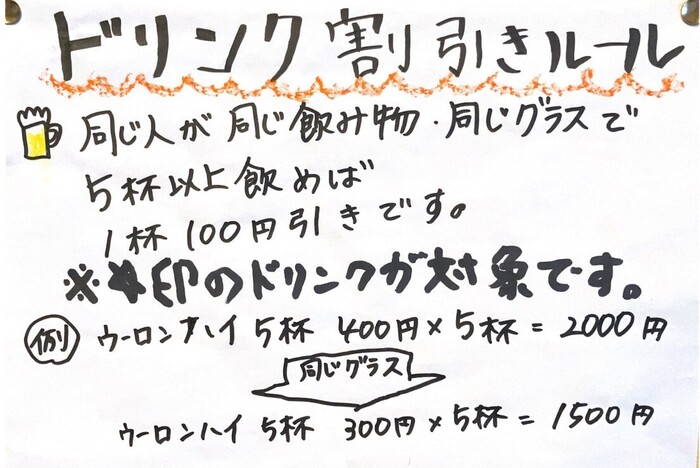 ドリンク割引きルール
同じ人が同じ飲み物・同じグラスで
5杯以上飲めば
1杯100円引きです。
※★印のドリンクが対象です。
例 ウーロンハイ 5杯 400円×5杯=2000円
同じグラス
ウーロンハイ 5杯 300円×5杯=1500円